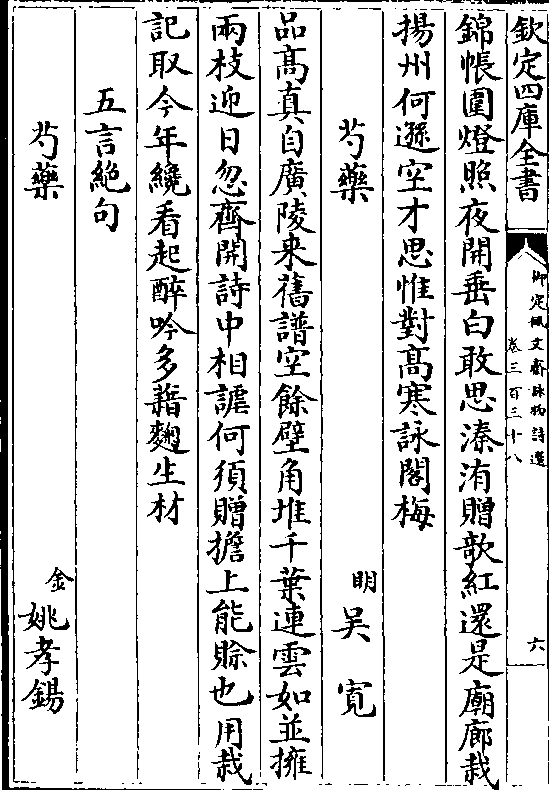 欽定四庫全書
御定佩文齋詠物詩選
卷三百三十八
六
錦帳圍燈照夜開垂白敢思溱洧贈歌紅還是廟廊栽
揚州何遜空才思惟對高寒詠閣梅
芍藥
明
吴寛
品髙真自廣陵来舊譜空餘壁角堆千葉連雲如並擁
兩枝迎日忽齊開詩中相謔何須贈擔上能賒也用栽
記取今年纔看起醉吟多藉麴生材
五言絶句
芍藥
金
姚孝錫